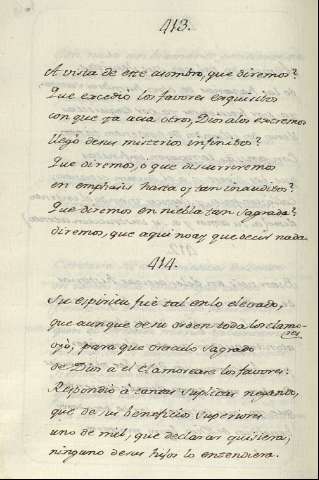 413.
A vista de este asombro, que diremos?
Que excedió los favores exquisitos
con que ya acia otros, Dios a los extremos
llegó de sus misterios infinitos?
Que diremos, ó que discurriremos
en emphasis hasta oy tan inauditos?
Que diremos en niebla tan sagrada?
diremos, que aqui no ay que decir nada.
414.
Su espiritu fuè tal en lo elevado,
que aunque de su orden toda los clamo-
res
oyò, para que Oraculo sagrado
de Dios á él clamoreare los favores:
Respondió à tantas suplicas negando,
que de sus beneficios superiores
uno de mil, que declarar quisiera,
ninguno de sus hijos lo entendiera.